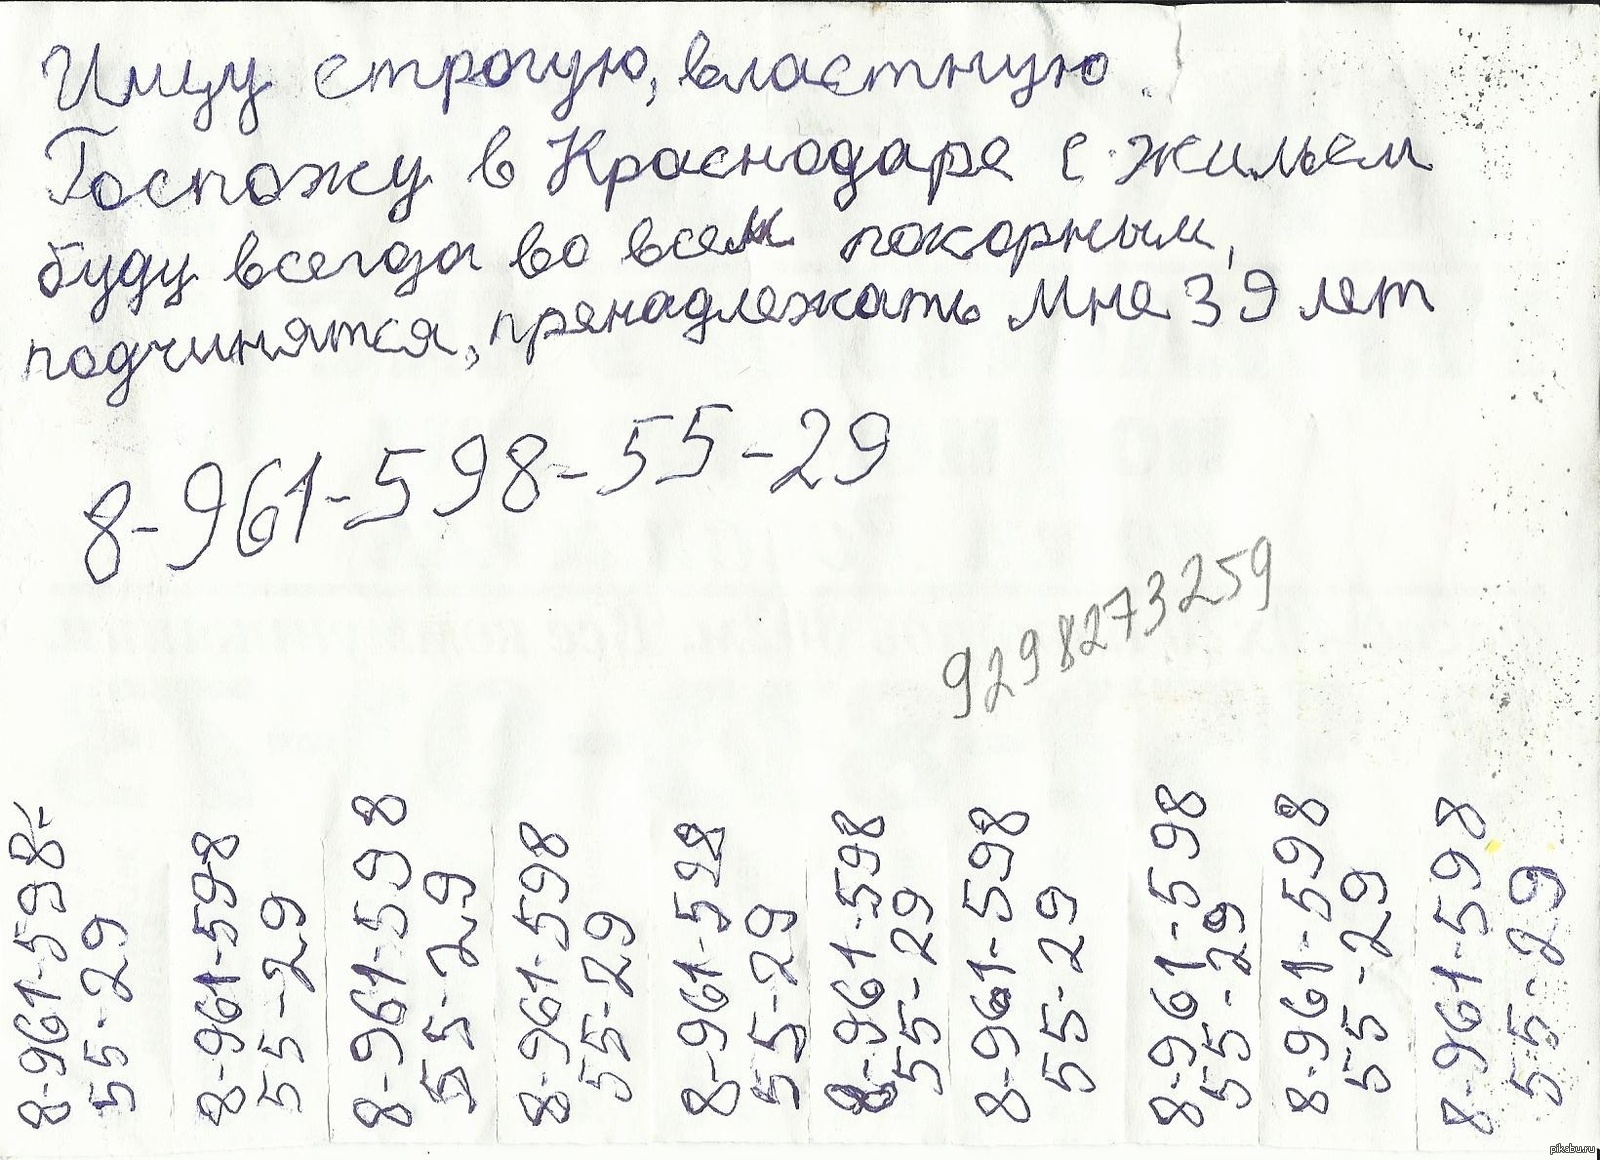 Ищу строгую, властную
Госпожу в Краснодаре с жильем
буду всегда во всем покорным,
подчинятся, пренадлежать Мне 39 лет
8-961-598-55-29
9298273259
8-961-598-
55-29
8-961-598
55-29
8-961-598
55-29
8-961-598
55-29
8-961-598
55-29
8-961-598
55-29
8-961-598
55-29
8-961-598
55-29
8-961-598
55-29
8-961-598
55-29
pikabu.ru